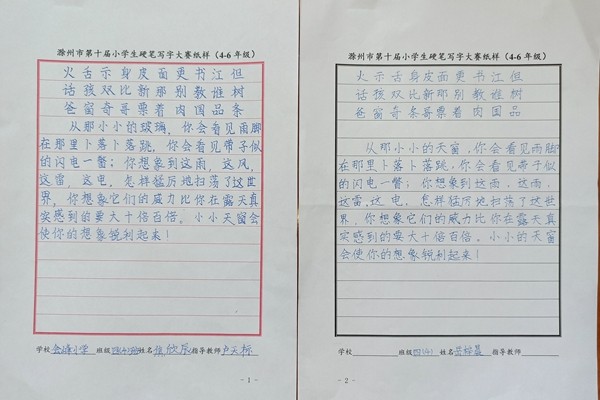 滁州市第十届小学生硬笔写字大赛纸样（4-6年级）
火舌示身皮面更书江但
话孩双比新那别教谁树
爸留奇哥票着肉国品条
从那小小的玻璃，你会看见雨脚
在那里卜落卜落跳，你会看见带子似
的闪电一瞥；你想象到这雨，这风，
这雷，这电，怎样猛厉地扫荡了这世
界，你想象它们的威力比你在露天真
实感到的要大十倍百倍。小小天窗会
使你的想象锐利起来！
学校 小学 班级 姓名 欣辰 指导教师 卢天标
- 1 -
滁州市第十届小学生硬笔写字大赛纸样（4-6年级）
火示舌身皮面更书江但
话孩双比新那别教谁树
爸留奇条哥票着肉国品
从那小小的天窗，你会看见雨脚
在那里卜落卜落跳，你会看见带子似
的闪电一瞥；你想象到这雨，这雨，
这雷，这电，怎样猛厉地扫荡了这世
界，你想象它们的威力比你在露天真
实感到的要大十倍百倍。小小的天窗
会使你的想象锐利起来！
学校 班级 四(4) 姓名 指导教师
- 2 -